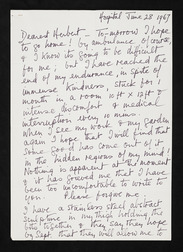 Hospital June 28 1967
Dearest Herbert - To-morrow I hope
to go home! by ambulance of course,
& I know its going to be difficult
for me, but I have reached the
end of my endurance, in spite of
immense kindness, stuck for 1
month in a room 10 ft x 9 ft &
intense discomfort & medical
interruption every 10 mins.
When I see my work & my garden
again I hope that I will find that
Some good has come out of it,
in the hidden regions of my mind!
Nothing is apparent at this moment
& it has grieved me that I have
been too uncomfortable to write to
you. Please forgive me.
I have a stainless steel abstract
sculpture in my thigh holding the
bone together & they say they hope
by Sept. that they will allow me to